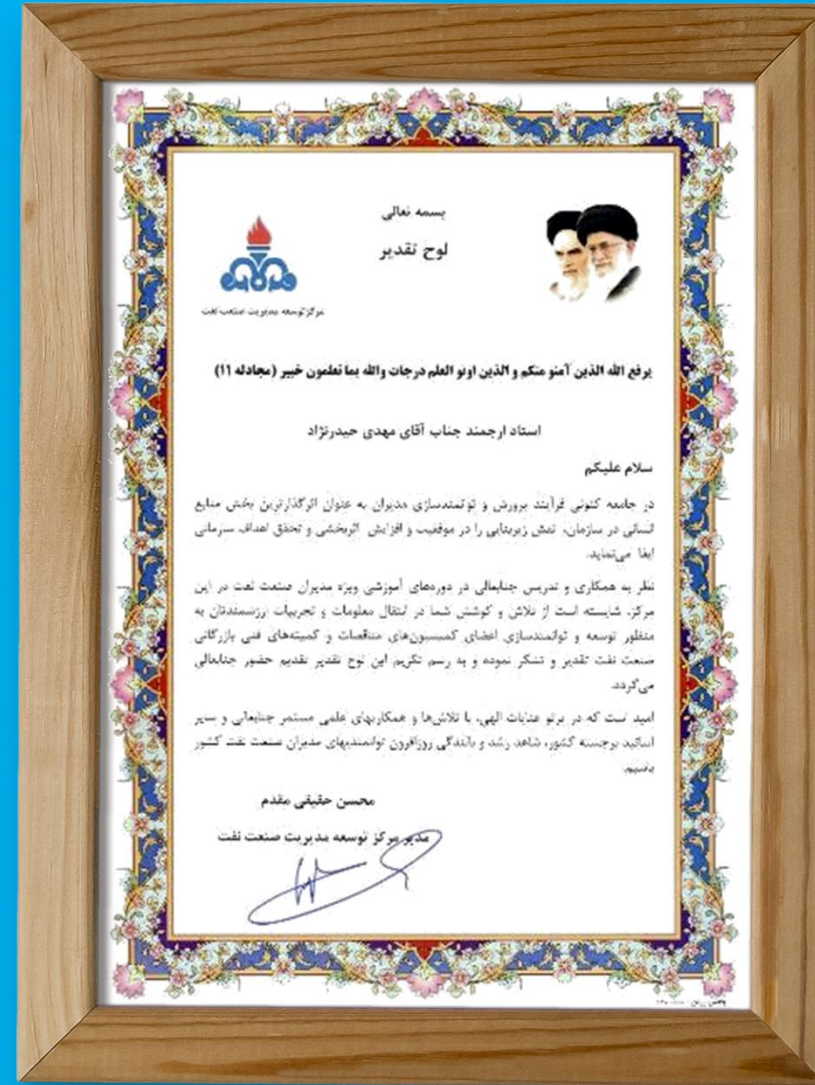 بسمه تعالی
لوح تقدیر
مرکز توسعه مدیریت صنعت نفت
یرفع الله الذین آمنو منکم و الذین اوتو العلم درجات والله بما تعلمون خبیر (مجادله ۱۱)
استاد ارجمند جناب آقای مهدی حیدرنژاد
سلام علیکم
در جامعه کنونی فرآیند پرورش و توانمندسازی مدیران به عنوان اثرگذارترین بخش منابع
انسانی در سازمان، نقش زیربنایی را در موفقیت و افزایش اثربخشی و تحقق اهداف سازمانی
ایفا می‌نماید.
نظر به همکاری و تدریس جنابعالی در دوره‌های آموزشی ویژه مدیران صنعت نفت در این
مرکز، شایسته است از تلاش و کوشش شما در انتقال معلومات و تجربیات ارزشمندتان به
منظور توسعه و توانمندسازی اعضای کمیسیون‌های مناقصات و کمیته‌های فنی بازرگانی
صنعت نفت تقدیر و تشکر نموده و به رسم تکریم این لوح تقدیر تقدیم حضور جنابعالی
می‌گردد.
امید است که در پرتو عنایات الهی، با تلاش‌ها و همکاریهای علمی مستمر جنابعالی و سایر
اساتید برجسته کشور، شاهد رشد و بالندگی روزافزون توانمندیهای مدیران صنعت نفت کشور
باشیم.
محسن حقیقی مقدم
مدیر مرکز توسعه مدیریت صنعت نفت